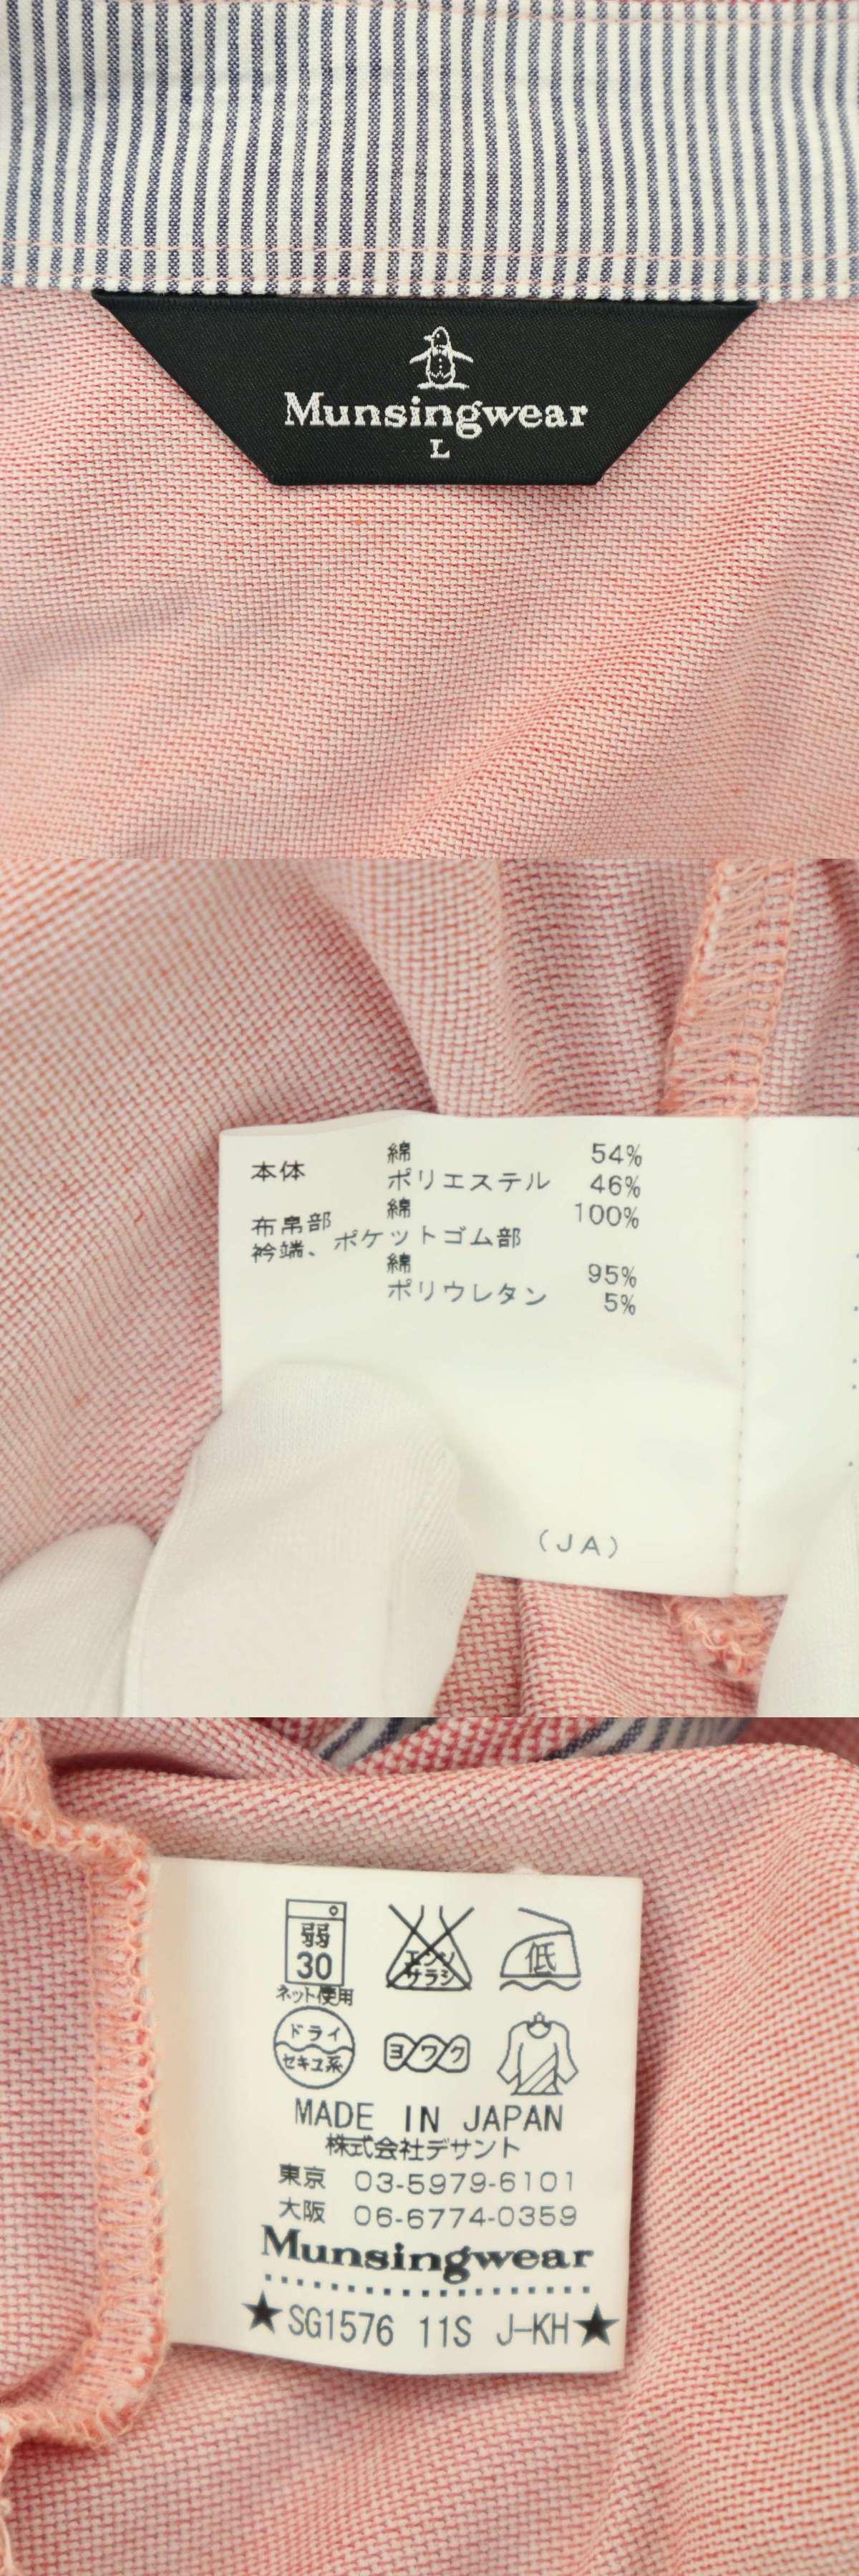 Munsingwear
L
本体 綿 54%
ポリエステル 46%
布帛部 綿 100%
衿端、ポケットゴム部
綿 95%
ポリウレタン 5%
(JA)
弱
30
ネット使用
エンソ
サラシ
低
ドライ
セキユ系
ヨワク
MADE IN JAPAN
株式会社デサント
東京 03-5979-6101
大阪 06-6774-0359
Munsingwear
★SG1576 11S J-KH★